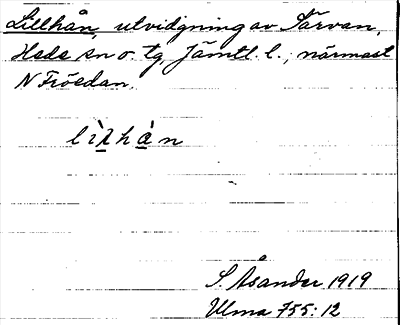 Lillhån, utvidgning av Särvan,
Hede sn o. tg, Jämtl. l.; närmast
N Fröedan.
lìlhàn
S. Åsander 1919
Ulma 755:12